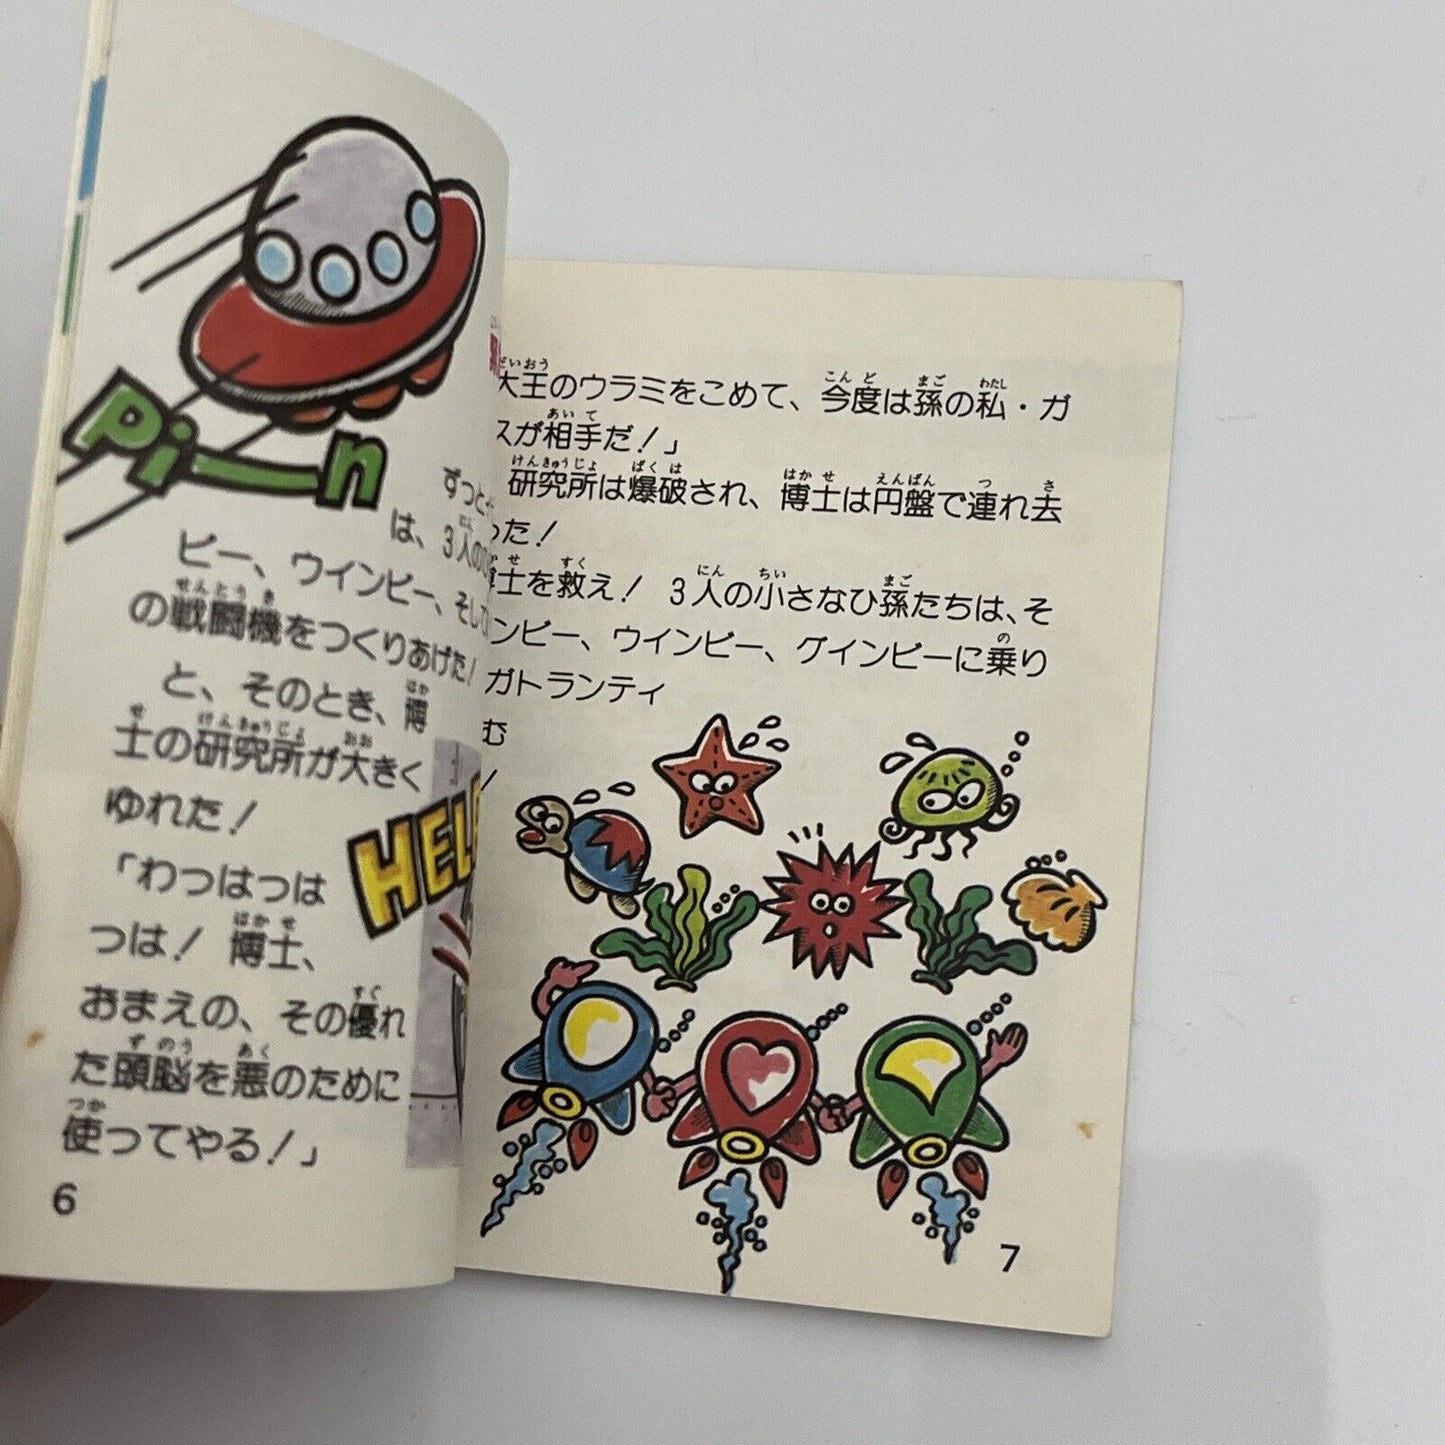 Pi—n
ずっと
は、3人の
ビー、ウインビー、そして
の戦闘機をつくりあげた!
と、そのとき、博
士の研究所が大きく
ゆれた!
「わっはっは
っは! 博士、
おまえの、その優れ
た頭脳を悪のために
使ってやる!」
HELP
6
大王のウラミをこめて、今度は孫の私・ガ
スが相手だ!」
研究所は爆破され、博士は円盤で連れ去
った!
博士を救え! 3人の小さなひ孫たちは、そ
ンビー、ウインビー、グインビーに乗り
ガトランティ
む
7